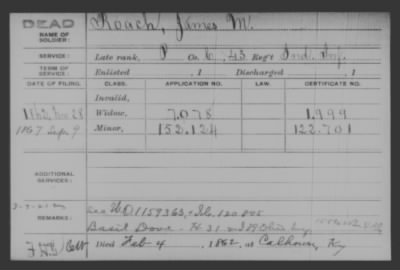 DEAD
Roach, James M.
NAME OF SOLDIER:
SERVICE: Late rank, P Co. C, 43 Reg't Ind. Inf.
TERM OF SERVICE: Enlisted , 1 Discharged , 1
DATE OF FILING. CLASS. APPLICATION NO. LAW. CERTIFICATE NO.
Invalid,
1862, Nov 28 Widow, 7.078 1.999
1867 Sep. 9 Minor, 152.124 122.701
ADDITIONAL SERVICES:
REMARKS: WO1159363,
Basil Dove - H. 31. and 89 Ohio Inf
Died Feb 4 , 1862, at Calhoun, Ky